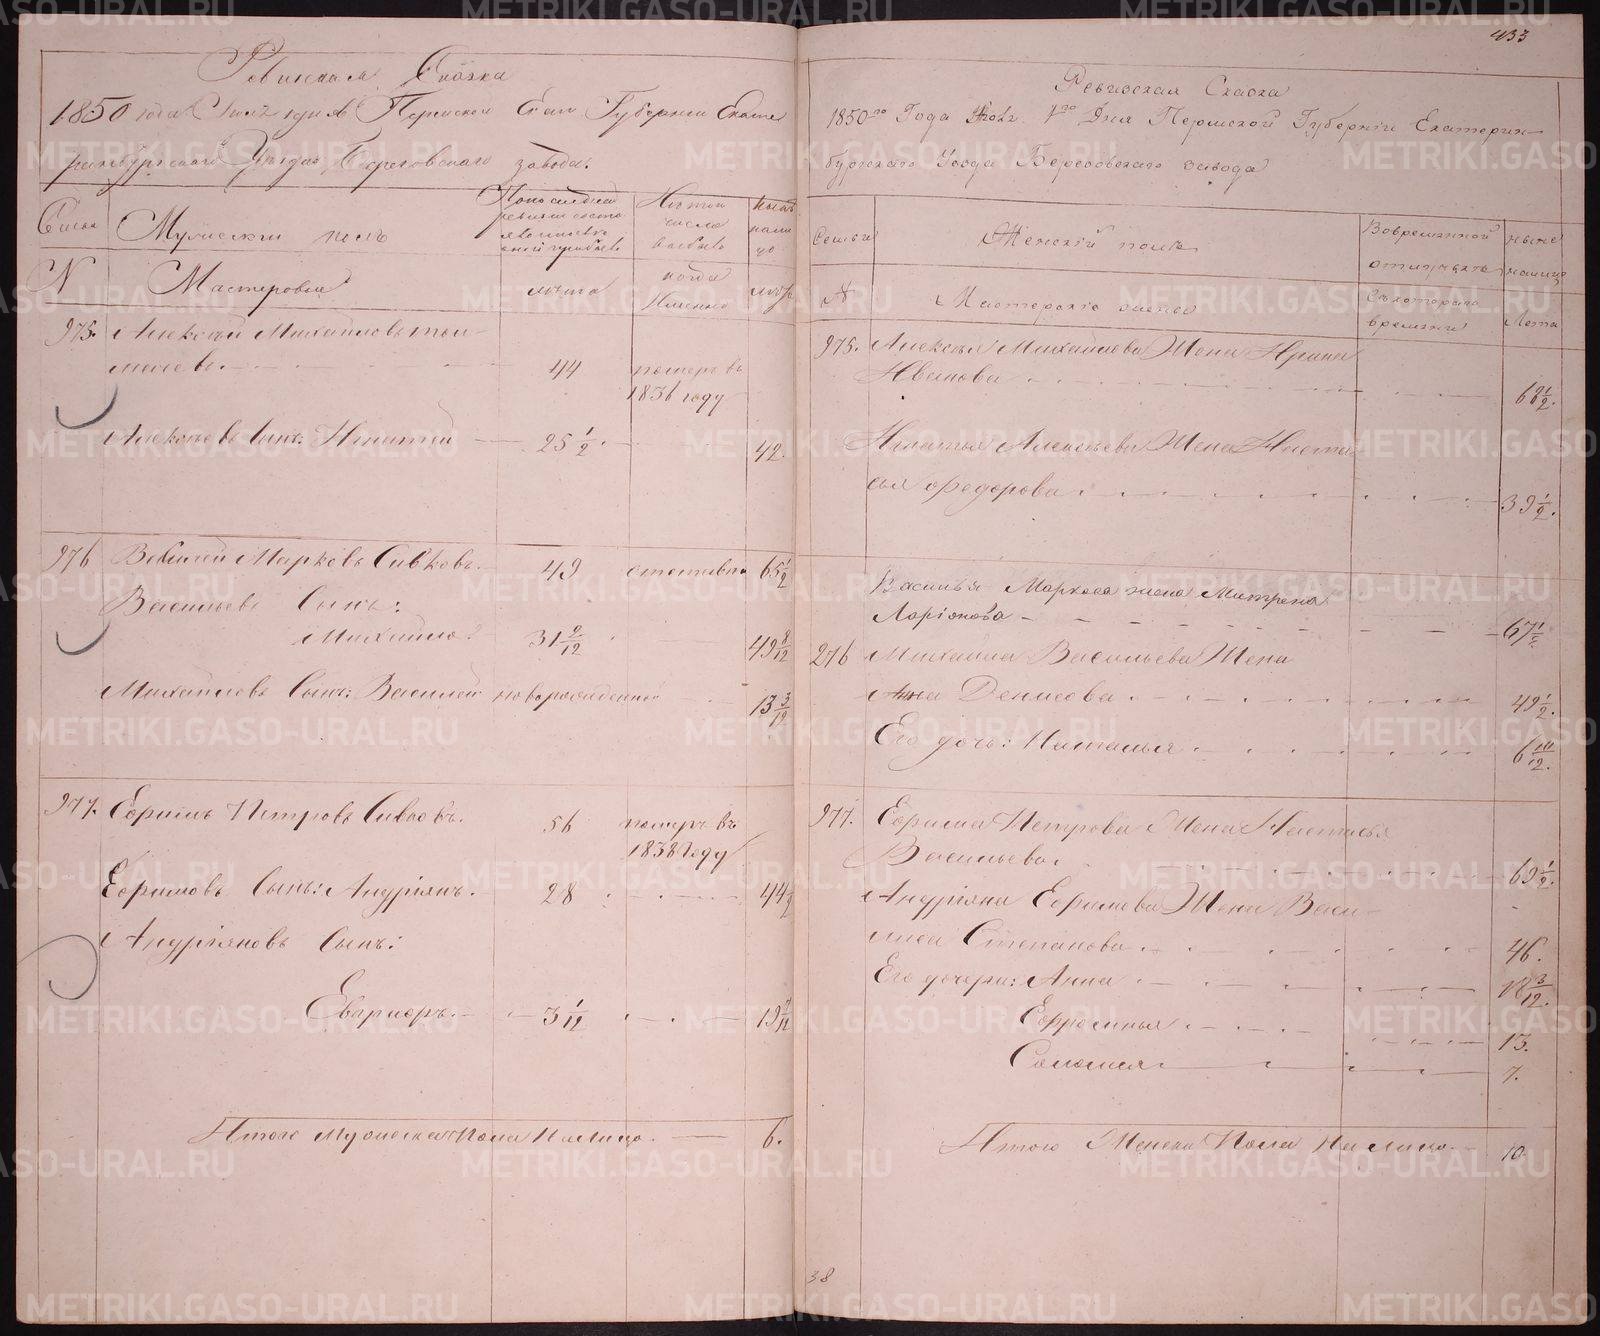 Ревизская Сказка
1850 года Июля 1 дня Пермской Губернии Екате
ринбургскаго Уезда Березовскаго завода.
Семьи
Мужеский полъ
По последней ревизии состояло и после оной прибыло
Изъ того числа выбыло
Ныне налицо
N
Мастеровые
лета
когда именно
лета
975. Алексей Михайловъ
44
померъ въ
1836 году
Алексеевъ Сынъ: Игнатий
25 1/2
42.
976 Василей Марковъ Сивковъ.
49
65 1/2
Васильевъ Сынъ:
Михайло
31 9/12
49 8/12
Михайловъ Сынъ: Василей новорожденной
13 3/12
977. Ефимъ Петровъ Сивковъ.
56
померъ въ
1838 году
Ефимовъ Сынъ: Андріянъ.
28
44 1/2
Андріяновъ Сынъ:
3 1/12
Итого Мужеска Пола На Лицо.
6.
433
Ревизская Сказка
1850го Года 1го Дня Пермской Губерніи Екатерин-
бургскаго Уезда Березовскаго завода
Семьи
Женскій полъ
Во временной отлучке
ныне налицо
N
Мастерскіе женки
Съ котораго времени
Лета
975. Алексея Михайлова Жена Ирина
Иванова
Игнатья Алексеева Жена Наста
сья Федорова
39 1/2.
Василья Маркова жена Матрена
Ларіонова
67 1/2
276 Михайла Васильева Жена
Анна Денисова
49 1/2.
Его дочь: Наталья
977. Ефима Петрова Жена Настасья
Васильева.
69 1/2.
Андріяна Ефимова Жена Васи-
лиса Степанова
46.
Его дочери: Анна
Ефросинья
13.
Соломея
7.
Итого Женска Пола На Лицо.
10
38
METRIKI.GASO-URAL.RU